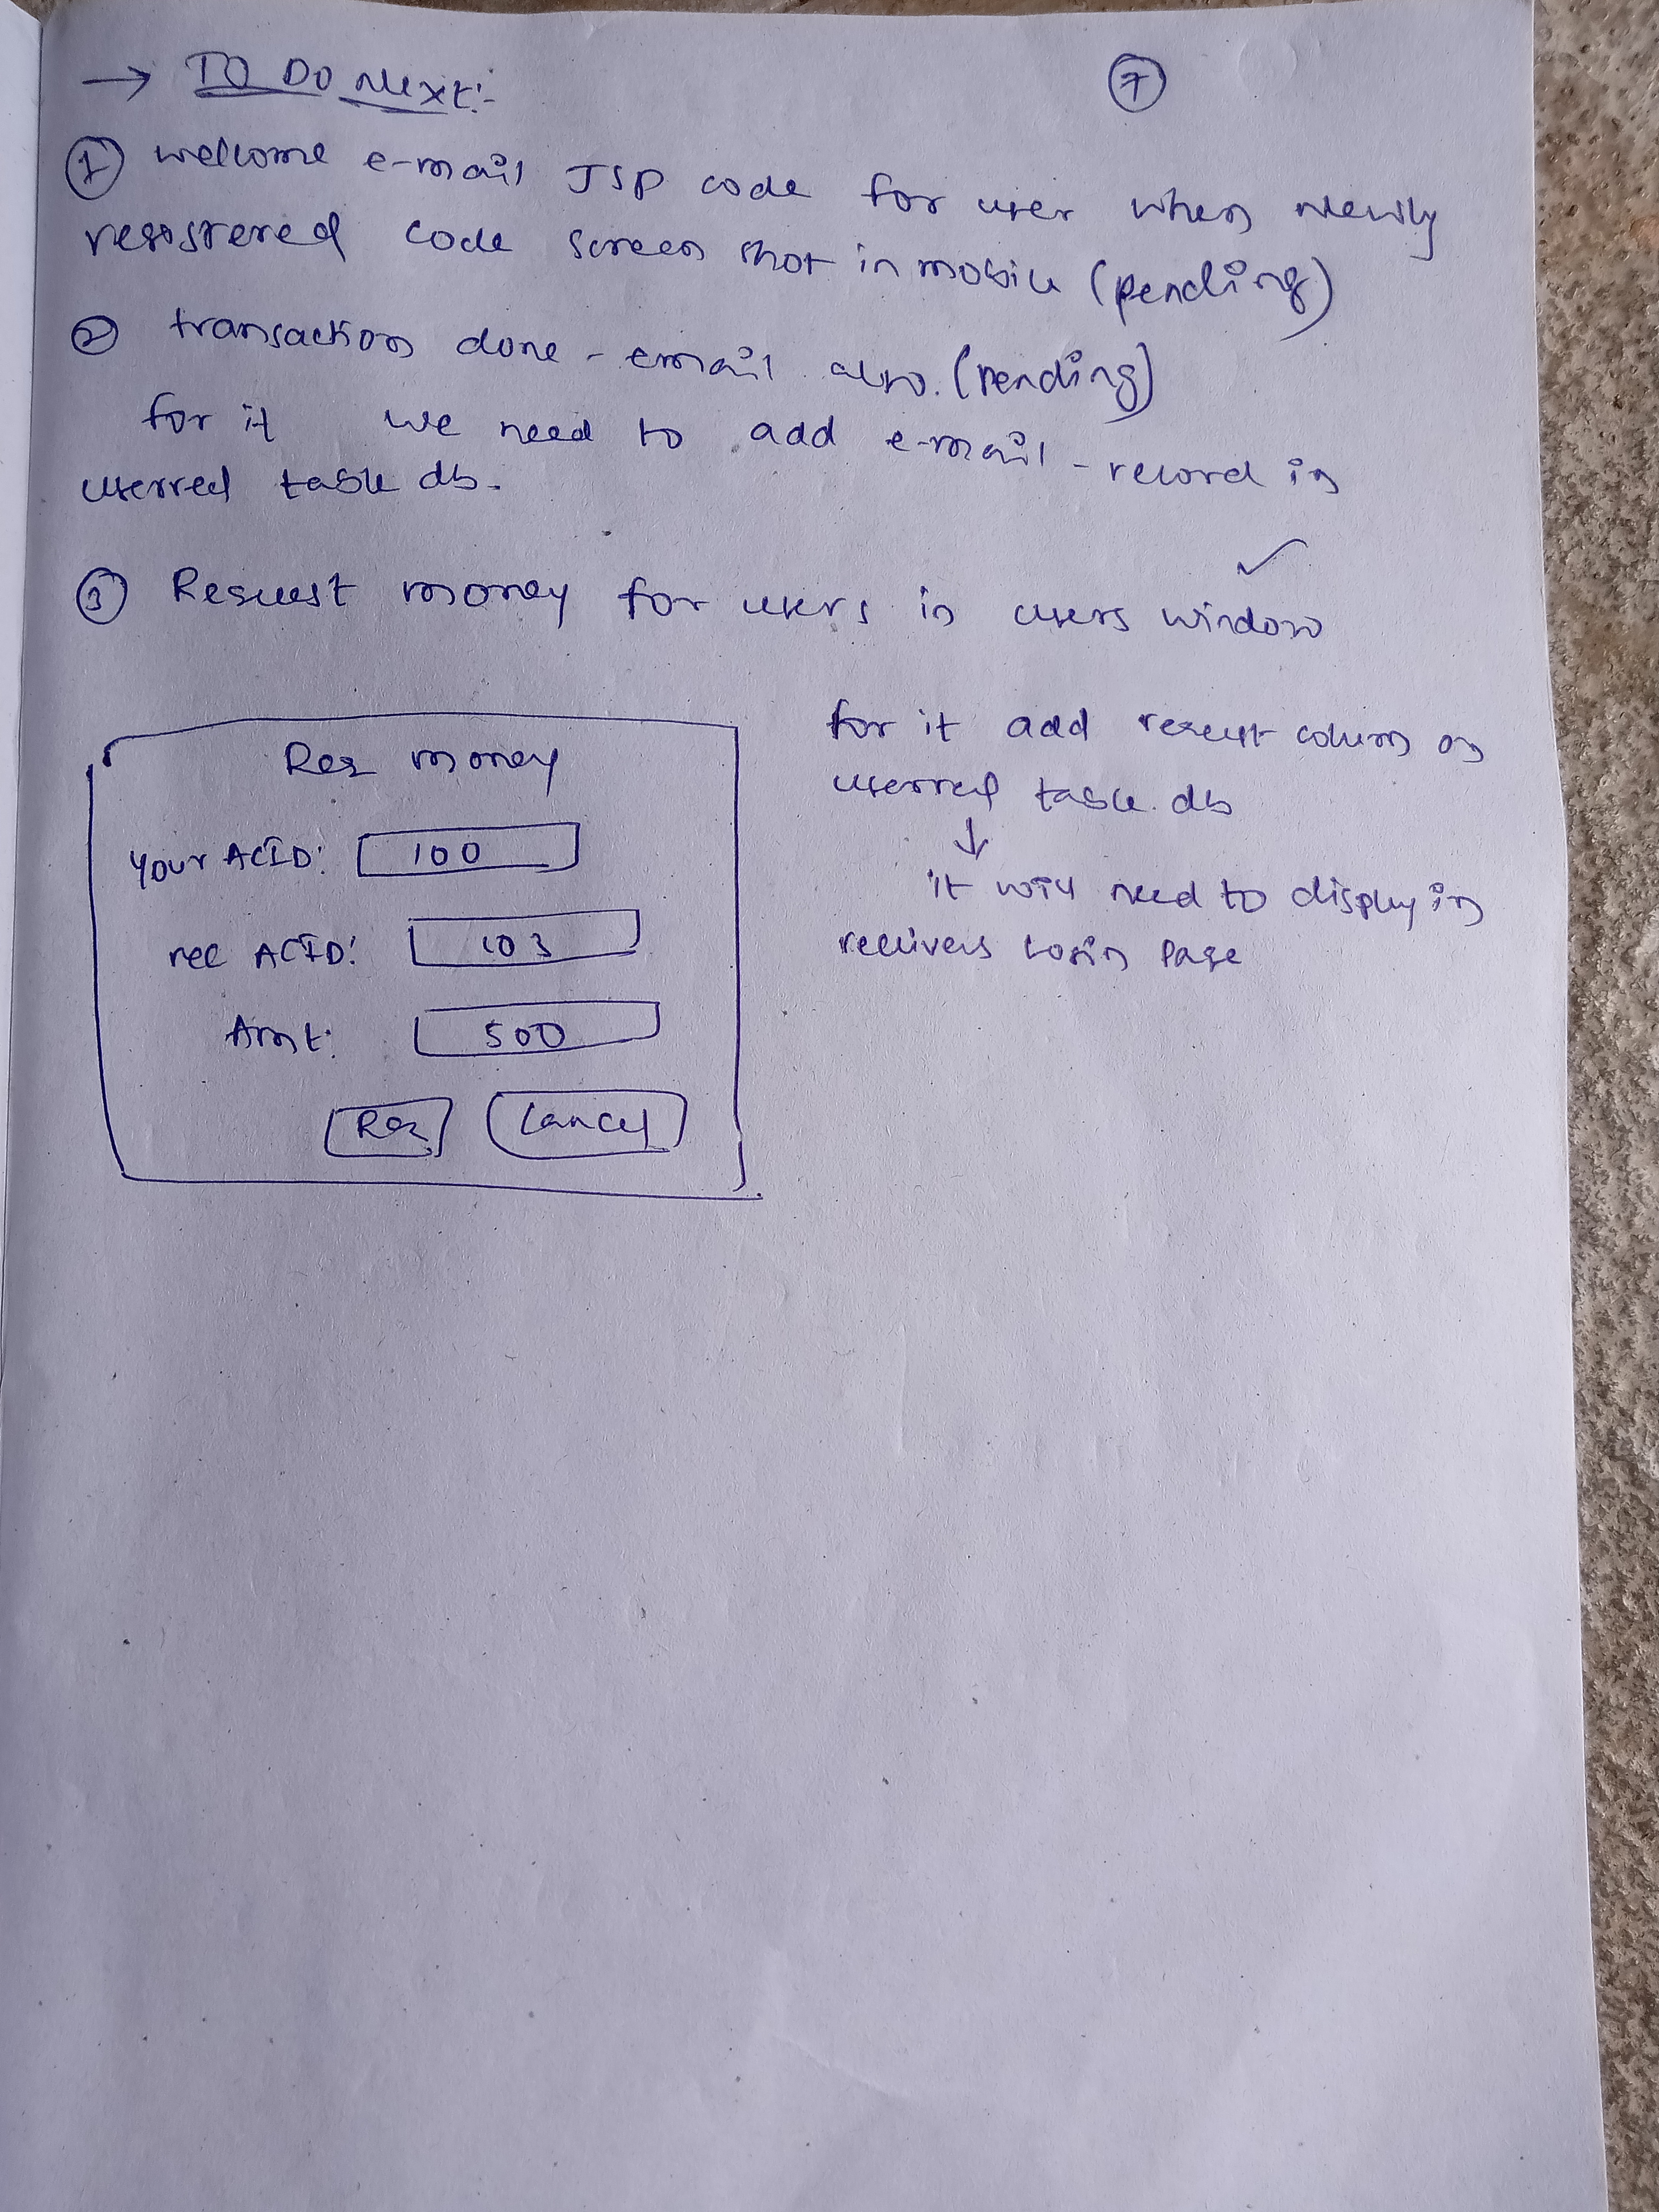 → TO DO Next:-
7
① wellcome e-mail JSP code for user when newly
registered code screen shot in mobile (pending)
② transaction done - email also. (pending)
for it we need to add e-mail - record in
userreg table db.
③ Request money for users in users window ✓
Req money
Your ACID: 100
rec ACID: 103
Amt: 500
Req Cancel
for it add request column on
userreg table db
↓
it will need to display in
receivers login page